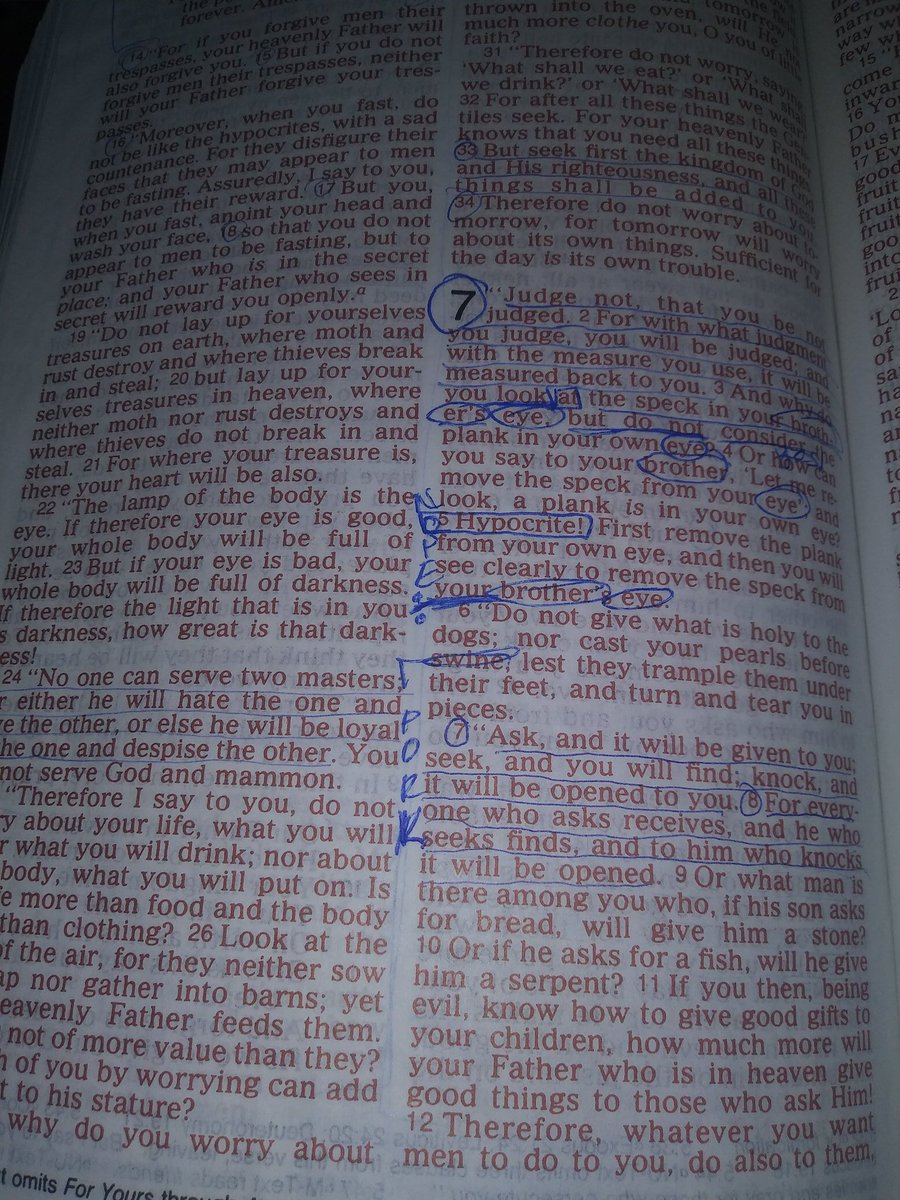 forever. Am
14 "For if you forgive men their
trespasses, your heavenly Father will
also forgive you. 15 But if you do not
forgive men their trespasses, neither
will your Father forgive your tres-
passes.
16 "Moreover, when you fast, do
not be like the hypocrites, with a sad
countenance. For they disfigure their
faces that they may appear to men
to be fasting. Assuredly, I say to you,
they have their reward. 17 But you,
when you fast, anoint your head and
wash your face, 18 so that you do not
appear to men to be fasting, but to
your Father who is in the secret
place; and your Father who sees in
secret will reward you openly.a
19 "Do not lay up for yourselves
treasures on earth, where moth and
rust destroy and where thieves break
in and steal; 20 but lay up for your-
selves treasures in heaven, where
neither moth nor rust destroys and
where thieves do not break in and
steal. 21 For where your treasure is,
there your heart will be also.
22 "The lamp of the body is the
eye. If therefore your eye is good,
your whole body will be full of
light. 23 But if your eye is bad, your
whole body will be full of darkness.
If therefore the light that is in you
s darkness, how great is that dark-
ess!
24 "No one can serve two masters;
r either he will hate the one and
ve the other, or else he will be loyal
he one and despise the other. You
not serve God and mammon.
"Therefore I say to you, do not
ry about your life, what you will
r what you will drink; nor about
body, what you will put on. Is
fe more than food and the body
than clothing? 26 Look at the
of the air, for they neither sow
ap nor gather into barns; yet
eavenly Father feeds them.
not of more value than they?
h of you by worrying can add
t to his stature?
why do you worry about
t omits For Yours through
PORK
thrown into the oven, will He not
much more clothe you, O you of little
faith?
31 "Therefore do not worry, saying,
'What shall we eat?' or 'What shall
we drink?' or 'What shall we wear?'
32 For after all these things the Gen-
tiles seek. For your heavenly Father
knows that you need all these things.
33 But seek first the kingdom of God
and His righteousness, and all these
things shall be added to you.
34 Therefore do not worry about to-
morrow, for tomorrow will worry
about its own things. Sufficient for
the day is its own trouble.
7 "Judge not, that you be not
judged. 2 For with what judgment
you judge, you will be judged; and
with the measure you use, it will be
measured back to you. 3 And why do
you look at the speck in your broth-
er's eye, but do not consider the
plank in your own eye? 4 Or how can
you say to your brother, 'Let me re-
move the speck from your eye'; and
look, a plank is in your own eye?
5 Hypocrite! First remove the plank
from your own eye, and then you will
see clearly to remove the speck from
your brother's eye.
6 "Do not give what is holy to the
dogs; nor cast your pearls before
swine, lest they trample them under
their feet, and turn and tear you in
pieces.
7 "Ask, and it will be given to you;
seek, and you will find; knock, and
it will be opened to you. 8 For every-
one who asks receives, and he who
seeks finds, and to him who knocks
it will be opened. 9 Or what man is
there among you who, if his son asks
for bread, will give him a stone?
10 Or if he asks for a fish, will he give
him a serpent? 11 If you then, being
evil, know how to give good gifts to
your children, how much more will
your Father who is in heaven give
good things to those who ask Him!
12 Therefore, whatever you want
men to do to you, do also to them,